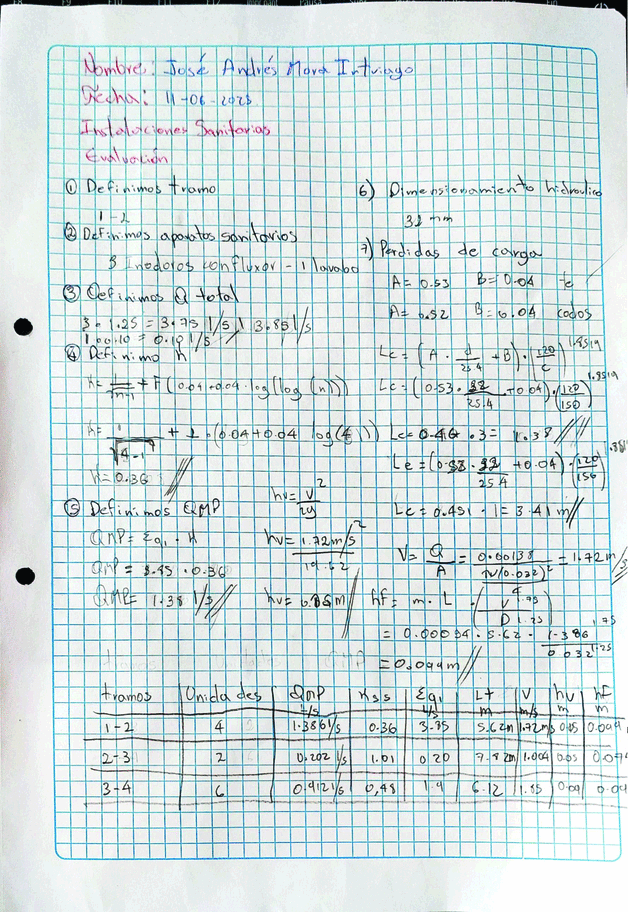 Nombre: José Andrés Mora Intriago
Fecha: 11-06-2023
Instalaciones Sanitarias
Evaluación
① Definimos tramo
1-2
② Definimos aparatos sanitarios
3 Inodoros con fluxor - 1 lavabo
③ Definimos Q total
3 · 1.25 = 3.75 l/s / 3.85 l/s
1 · 0.10 = 0.10 l/s
④ Definimo K
K = 1/√(n-1) + F (0.04 + 0.04 · log(log(n)))
K = 1/√(4-1) + 1 · (0.04 + 0.04 log(4))
K = 0.36
⑤ Definimos QMP
QMP = Σq1 · K
QMP = 3.85 · 0.36
QMP = 1.38 l/s
6) Dimensionamiento hidraulico
32 mm
7) Perdidas de carga
A = 0.53 B = 0.04 te
A = 0.52 B = 0.04 codos
Lc = (A · d/25.4 + B) · (120/C)^1.8519
Lc = (0.53 · 32/25.4 + 0.04) · (120/150)^1.8519
Lc = 0.46 · 3 = 1.38
Le = (0.53 · 32/25.4 + 0.04) · (120/150)
Lc = 0.451 · 1 = 3.41 m
hv = V²/2g
hv = 1.72 m/s²/19.62
hv = 0.15 m
V = Q/A = 0.00138/π(0.032)²/4 = 1.72 m/s
hf = m · L · (V^1.75/D^1.25)
= 0.00054 · 5.62 · 1.386^1.75/0.032^1.25
= 0.044 m
tramos Unidades QMP l/s Kss Σq1 l/s Lt m V m/s hv m hf m
1-2 4 1.386 l/s 0.36 3.85 5.62m 1.72m/s 0.15 0.044
2-3 2 0.202 l/s 1.01 0.20 7.82m 1.004 0.05 0.07
3-4 6 0.912 l/s 0,48 1.9 6.12 1.85 0.09 0.04